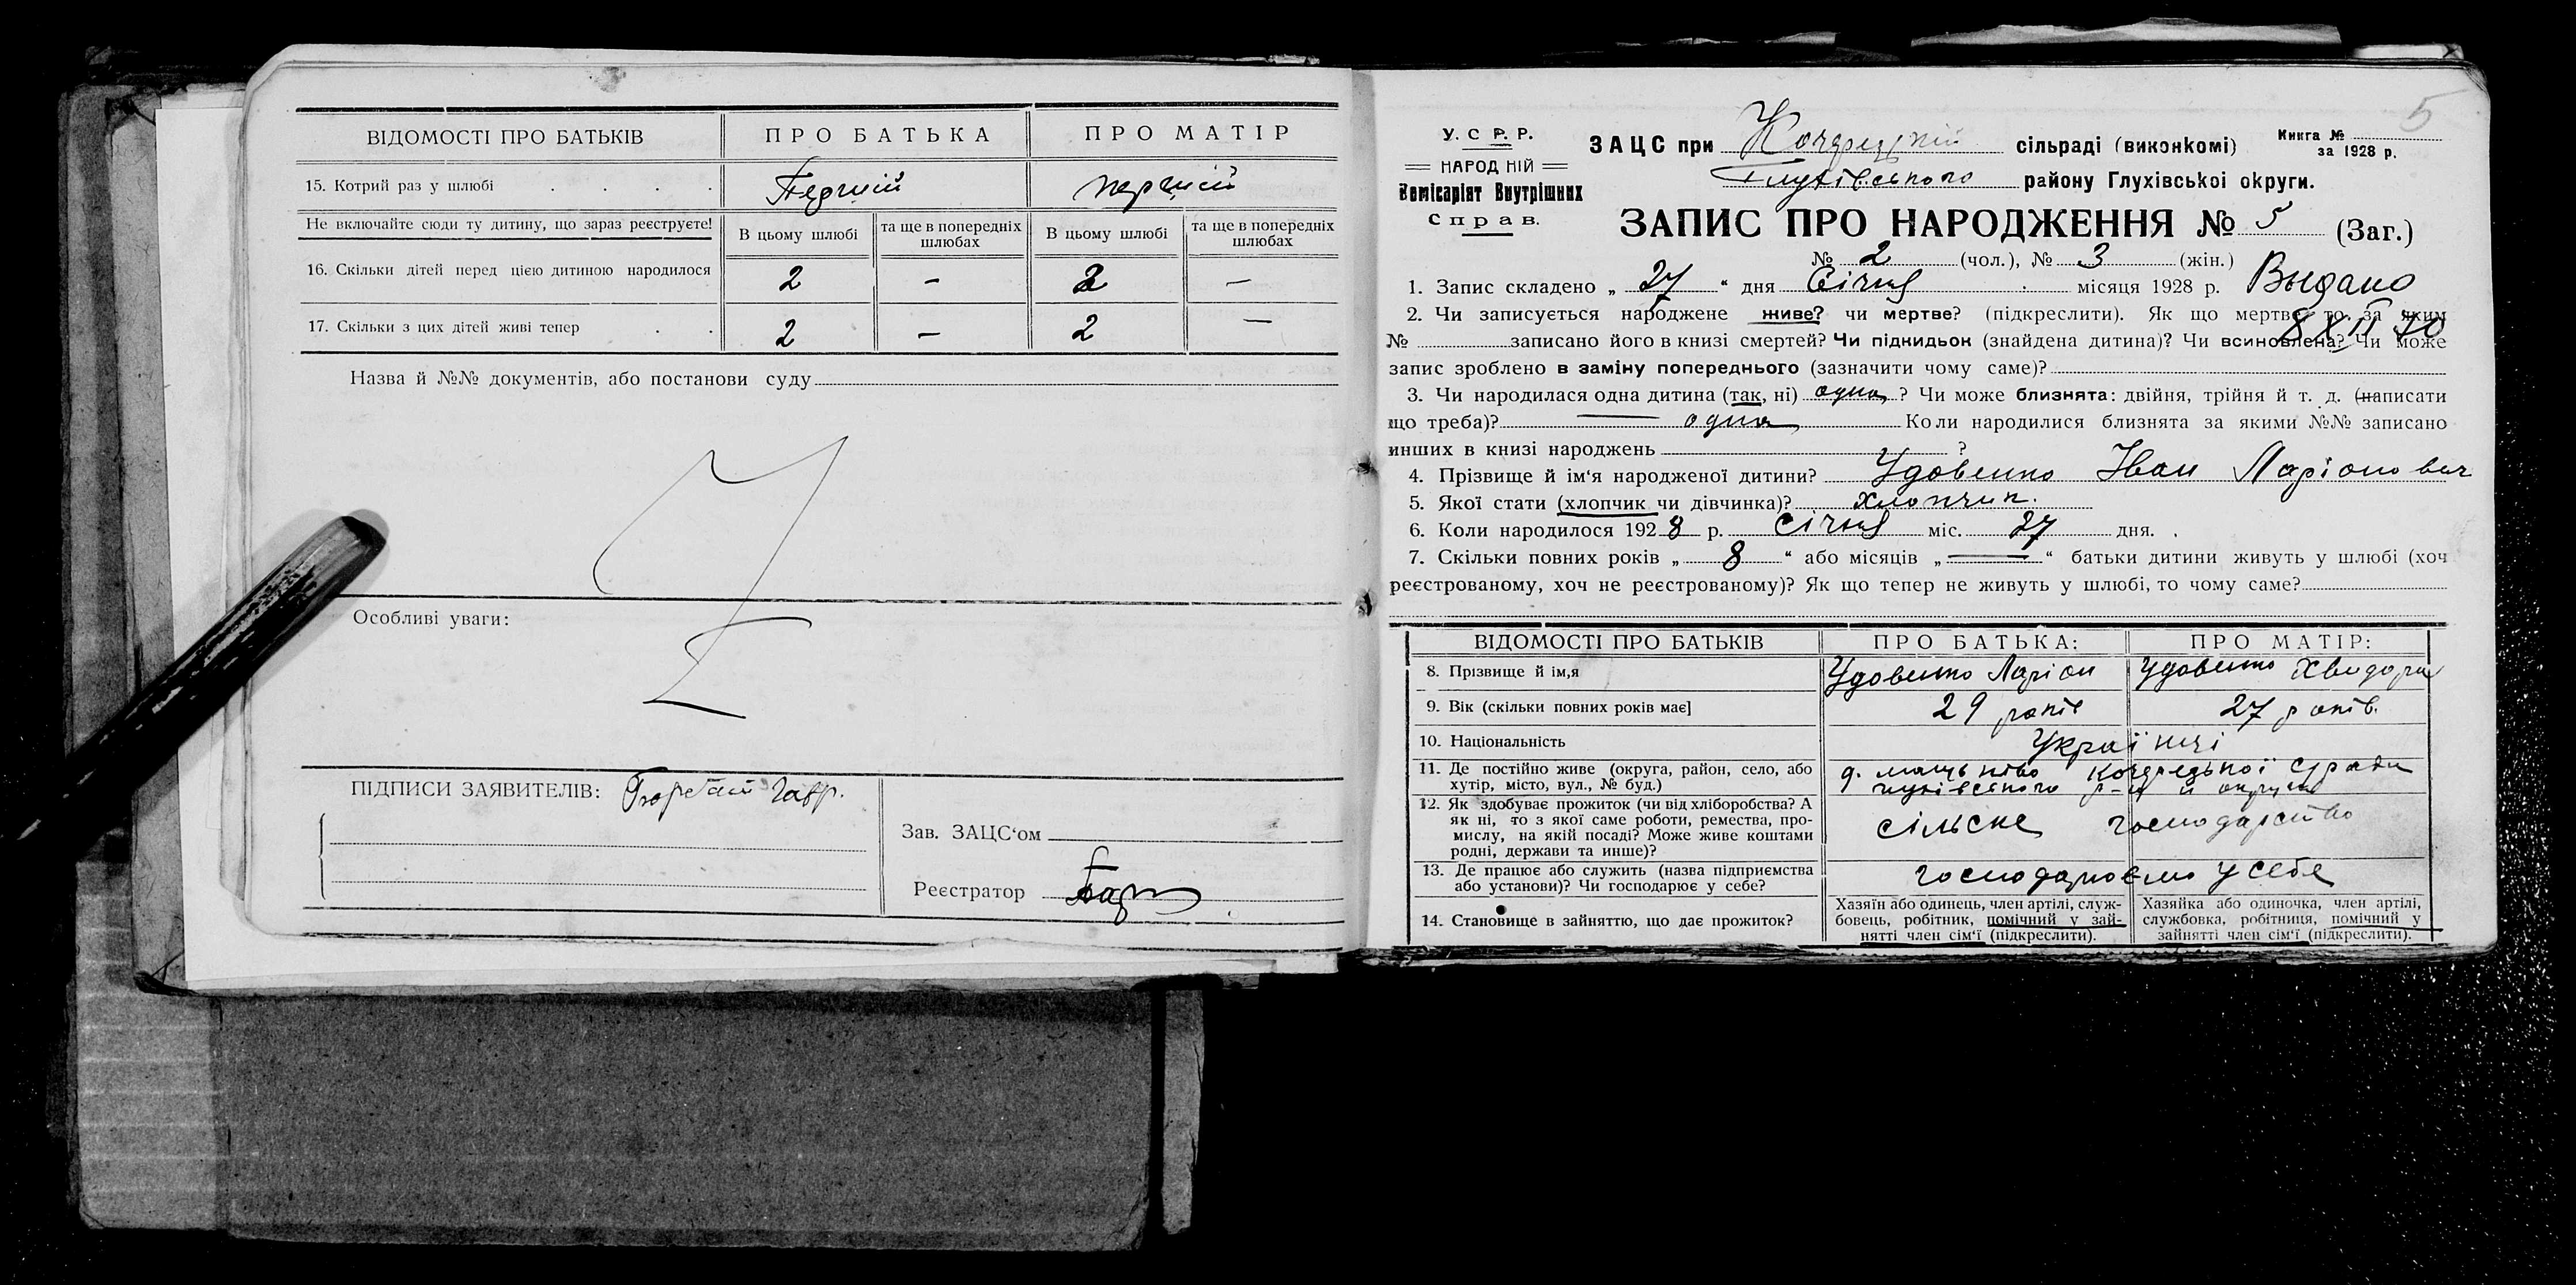 ВІДОМОСТІ ПРО БАТЬКІВ ПРО БАТЬКА ПРО МАТІР
15. Котрий раз у шлюбі . . . . Перший перший
Не включайте сюди ту дитину, що зараз реєструєте! В цьому шлюбі та ще в попередніх шлюбах В цьому шлюбі та ще в попередніх шлюбах
16. Скільки дітей перед цією дитиною народилося 2 – 2 –
17. Скільки з цих дітей живі тепер . . 2 – 2 –
Назва й №№ документів, або постанови суду
Особливі уваги:
ПІДПИСИ ЗАЯВИТЕЛІВ:
Зав. ЗАЦС‘ом
Реєстратор
5
У. С Р. Р.
НАРОДНІЙ
Комісаріят Внутрішних
Справ.
ЗАЦС при сільраді (виконкомі) Книга №
за 1928 р.
Глухівського району Глухівської округи.
ЗАПИС ПРО НАРОДЖЕННЯ № 5 (Заг.)
№ 2 (чол.), № 3 (жін.)
1. Запис складено „ 27 “ дня Січня місяця 1928 р. Выдано
2. Чи записується народжене живе? чи мертве? (підкреслити). Як що мертве, то за яким
№ записано його в книзі смертей? Чи підкидьок (знайдена дитина)? Чи всиновлена? Чи може
запис зроблено в заміну попереднього (зазначити чому саме)?
3. Чи народилася одна дитина (так, ні) одна ? Чи може близнята: двійня, трійня й т. д. (написати
що треба)? одна Коли народилися близнята за якими №№ записано
инших в книзі народжень ?
4. Прізвище й ім‘я народженої дитини? Удовенко Іван Ларіонович
5. Якої стати (хлопчик чи дівчинка)? хлопчик.
6. Коли народилося 1928 р. січня міс. 27 дня.
7. Скільки повних років „ 8 “ або місяців „ — “ батьки дитини живуть у шлюбі (хоч
реєстрованому, хоч не реєстрованому)? Як що тепер не живуть у шлюбі, то чому саме?
ВІДОМОСТІ ПРО БАТЬКІВ ПРО БАТЬКА: ПРО МАТІР:
8. Прізвище й ім,я Удовенко Ларіон Удовенко Хведора
9. Вік (скільки повних років має] 29 років 27 років.
10. Національність Українці
11. Де постійно живе (округа, район, село, або
хутір, місто, вул., № буд.) Глухівського р-н й округи
12. Як здобуває прожиток (чи від хліборобства? А
як ні, то з якої саме роботи, ремества, про-
мислу, на якій посаді? Може живе коштами
родні, держави та инше)? сільске господарство
13. Де працює або служить (назва підприємства
або установи)? Чи господарює у себе? господарюємо у себе
14. Становище в зайняттю, що дає прожиток?
Хазяїн або одинець, член артілі, служ-
бовець, робітник, помічний у зай-
нятті член сім‘ї (підкреслити).
Хазяйка або одиночка, член артілі,
службовка, робітниця, помічний у
зайнятті член сім‘ї (підкреслити).